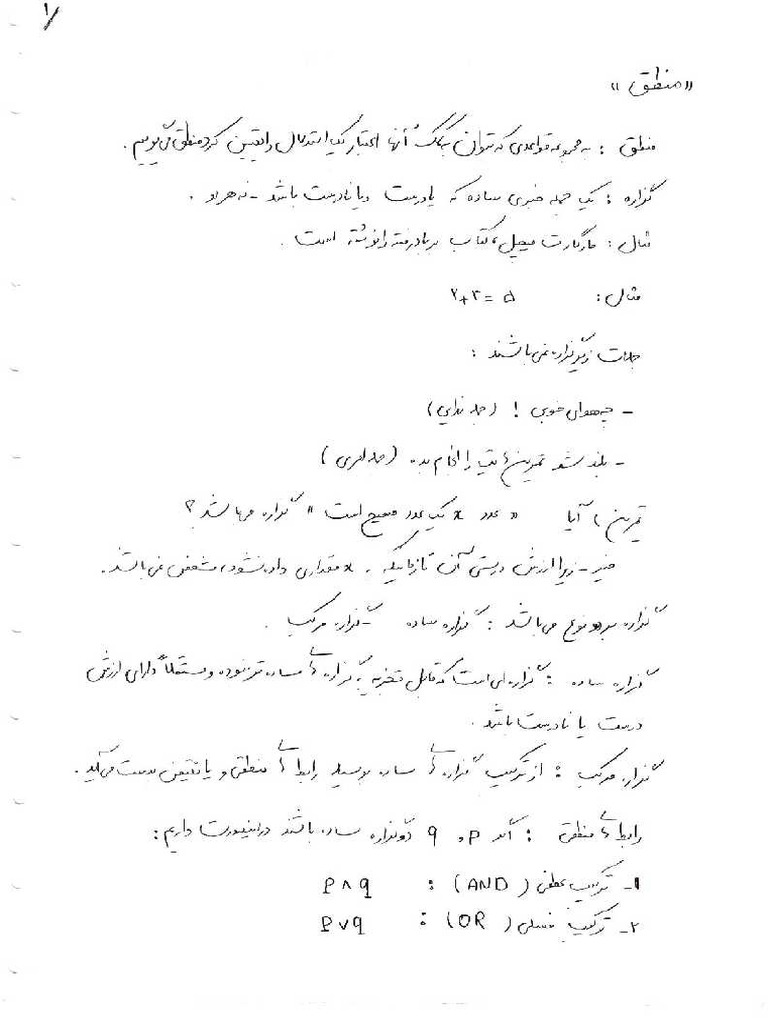 ۱/
«منطق»
منطق : به مجموعه قواعدی که بتوان به کمک آنها اعتبار یک استدلال را تعیین کرد منطق می‌گوییم .
گزاره : یک جمله خبری ساده که یا درست و یا نادرست باشد - نه هر دو .
مثال : مارگارت میچل، کتاب بر باد رفته را نوشته است .
مثال : ۲+۳=۵
جملات زیر گزاره نمی‌باشند :
- چه هوای خوبی ! (جمله ندایی)
- بلند شو تمرین‌هایت را انجام بده (جمله امری)
تمرین ، آیا « عدد x یک عدد صحیح است » گزاره می‌باشد ؟
خیر - زیرا ارزش درستی آن تا زمانیکه به x مقداری داده نشود، مشخص نمی‌باشد .
گزاره بر دو نوع می‌باشد : گزاره ساده - گزاره مرکب .
گزاره ساده : گزاره‌ای است که قابل تجزیه به گزاره‌های ساده‌تر نبوده و مستقلاً دارای ارزش
درست یا نادرست باشد .
گزاره مرکب : از ترکیب گزاره‌های ساده بوسیله رابط‌های منطقی و یا نقیض بدست می‌آید .
رابط‌های منطقی : اگر p و q دو گزاره ساده باشند در اینصورت داریم :
۱- ترکیب عطفی (AND) : p ∧ q
۲- ترکیب فصلی (OR) : p ∨ q